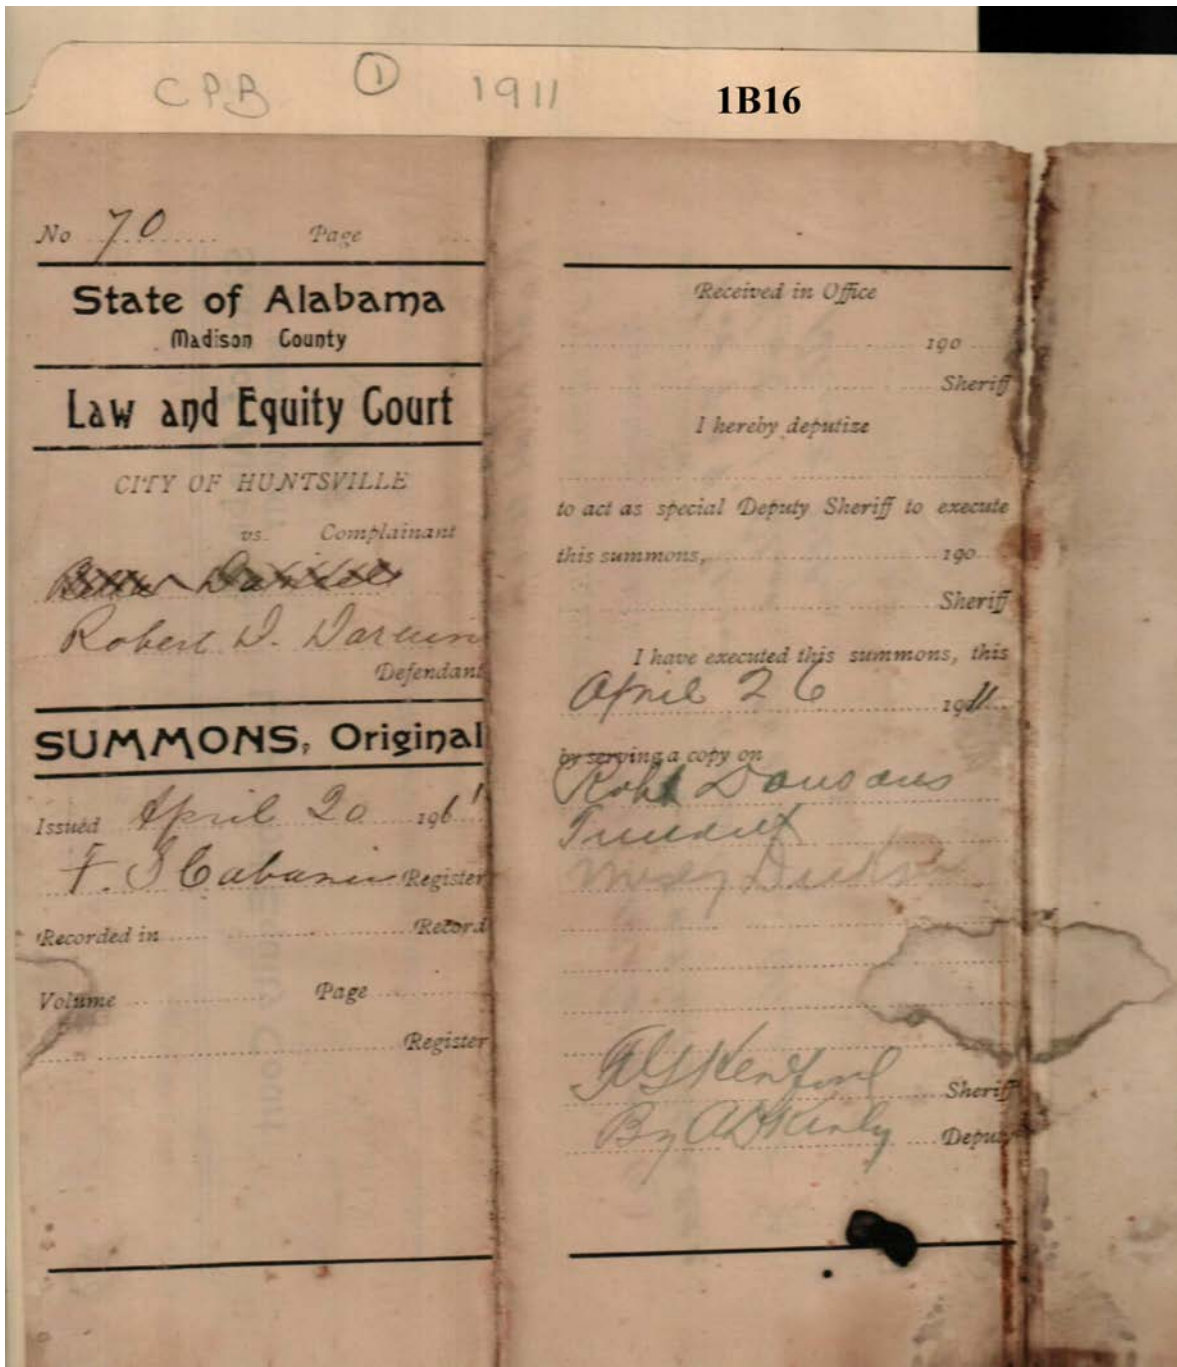 CPB 1 1911 1B16
No 70 Page
State of Alabama
Madison County
Law and Equity Court
CITY OF HUNTSVILLE
vs. Complainant
Robert D.
Defendant
SUMMONS, Original
Issued April 20 1911
F. S Cabaniss Register
Recorded in Record
Volume Page
Register
Received in Office
190
Sheriff
I hereby deputize
to act as special Deputy Sheriff to execute
this summons, 190
Sheriff
I have executed this summons, this
April 26 1911
by serving a copy on
Robt
Sheriff
By Deputy